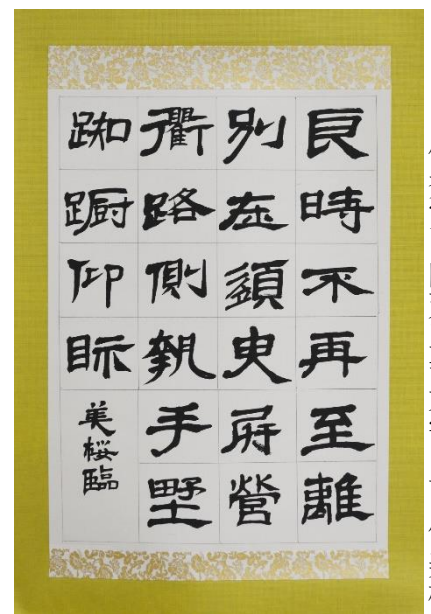 良時不再至離
別在須臾屏營
衢路側執手墅
踟蹰仰眎
美桜臨